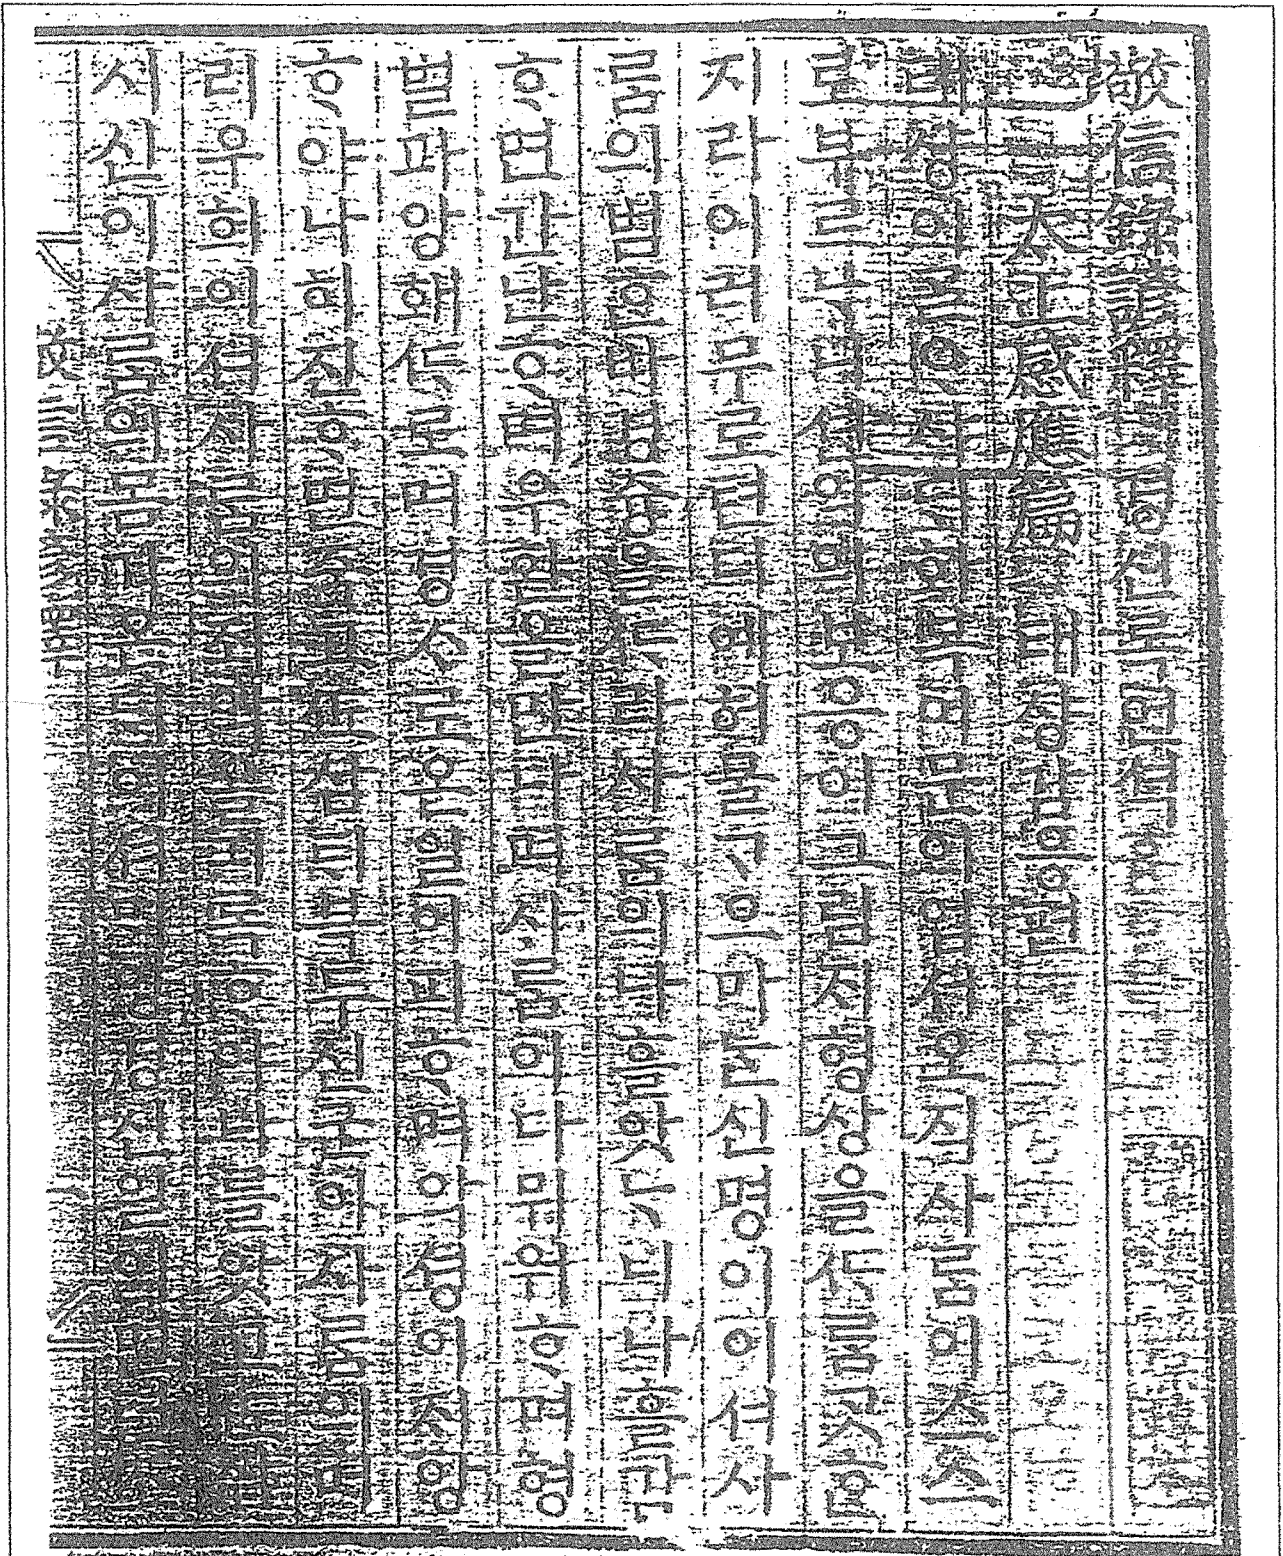 敬信錄諺釋 경신록언셕
太上感應篇 태샹감응편
태샹이 ᄀᆞᆯᄋᆞ샤ᄃᆡ 화복이 문이 업서 오직 사ᄅᆞᆷ이 스스
로 부르ᄂᆞ니 션악의 보응이 그림ᄌᆡ 형상을 ᄯᆞ름 ᄀᆞᆺᄒᆞᆫ
지라 이러무로 텬디에 허믈 ᄀᆞ으마ᄂᆞᆫ 신명이 이셔 사
ᄅᆞᆷ의 범ᄒᆞᆫ바 경즁을 ᄯᆞ라 사ᄅᆞᆷ의 나흘 앗ᄂᆞ니 나흘 감
ᄒᆞ면 간난ᄒᆞ며 우환을 만나며 사ᄅᆞᆷ이 다 뮈워ᄒᆞ며 형
벌과 앙홰 ᄯᆞ로며 경ᄉᆞ로온 일이 피ᄒᆞ며 악셩이 ᄌᆡ앙
ᄒᆞ야 나히 진ᄒᆞ면 죽고 ᄯᅩ 삼ᄐᆡ 븍두 신군이 사ᄅᆞᆷ의 머
리 우희 이셔 사ᄅᆞᆷ의 죄악을 긔록ᄒᆞ야 나흘 앗고 ᄯᅩ 삼
시신이 사ᄅᆞᆷ의 몸 가온ᄃᆡ 이셔 ᄆᆡ양 경신일이면